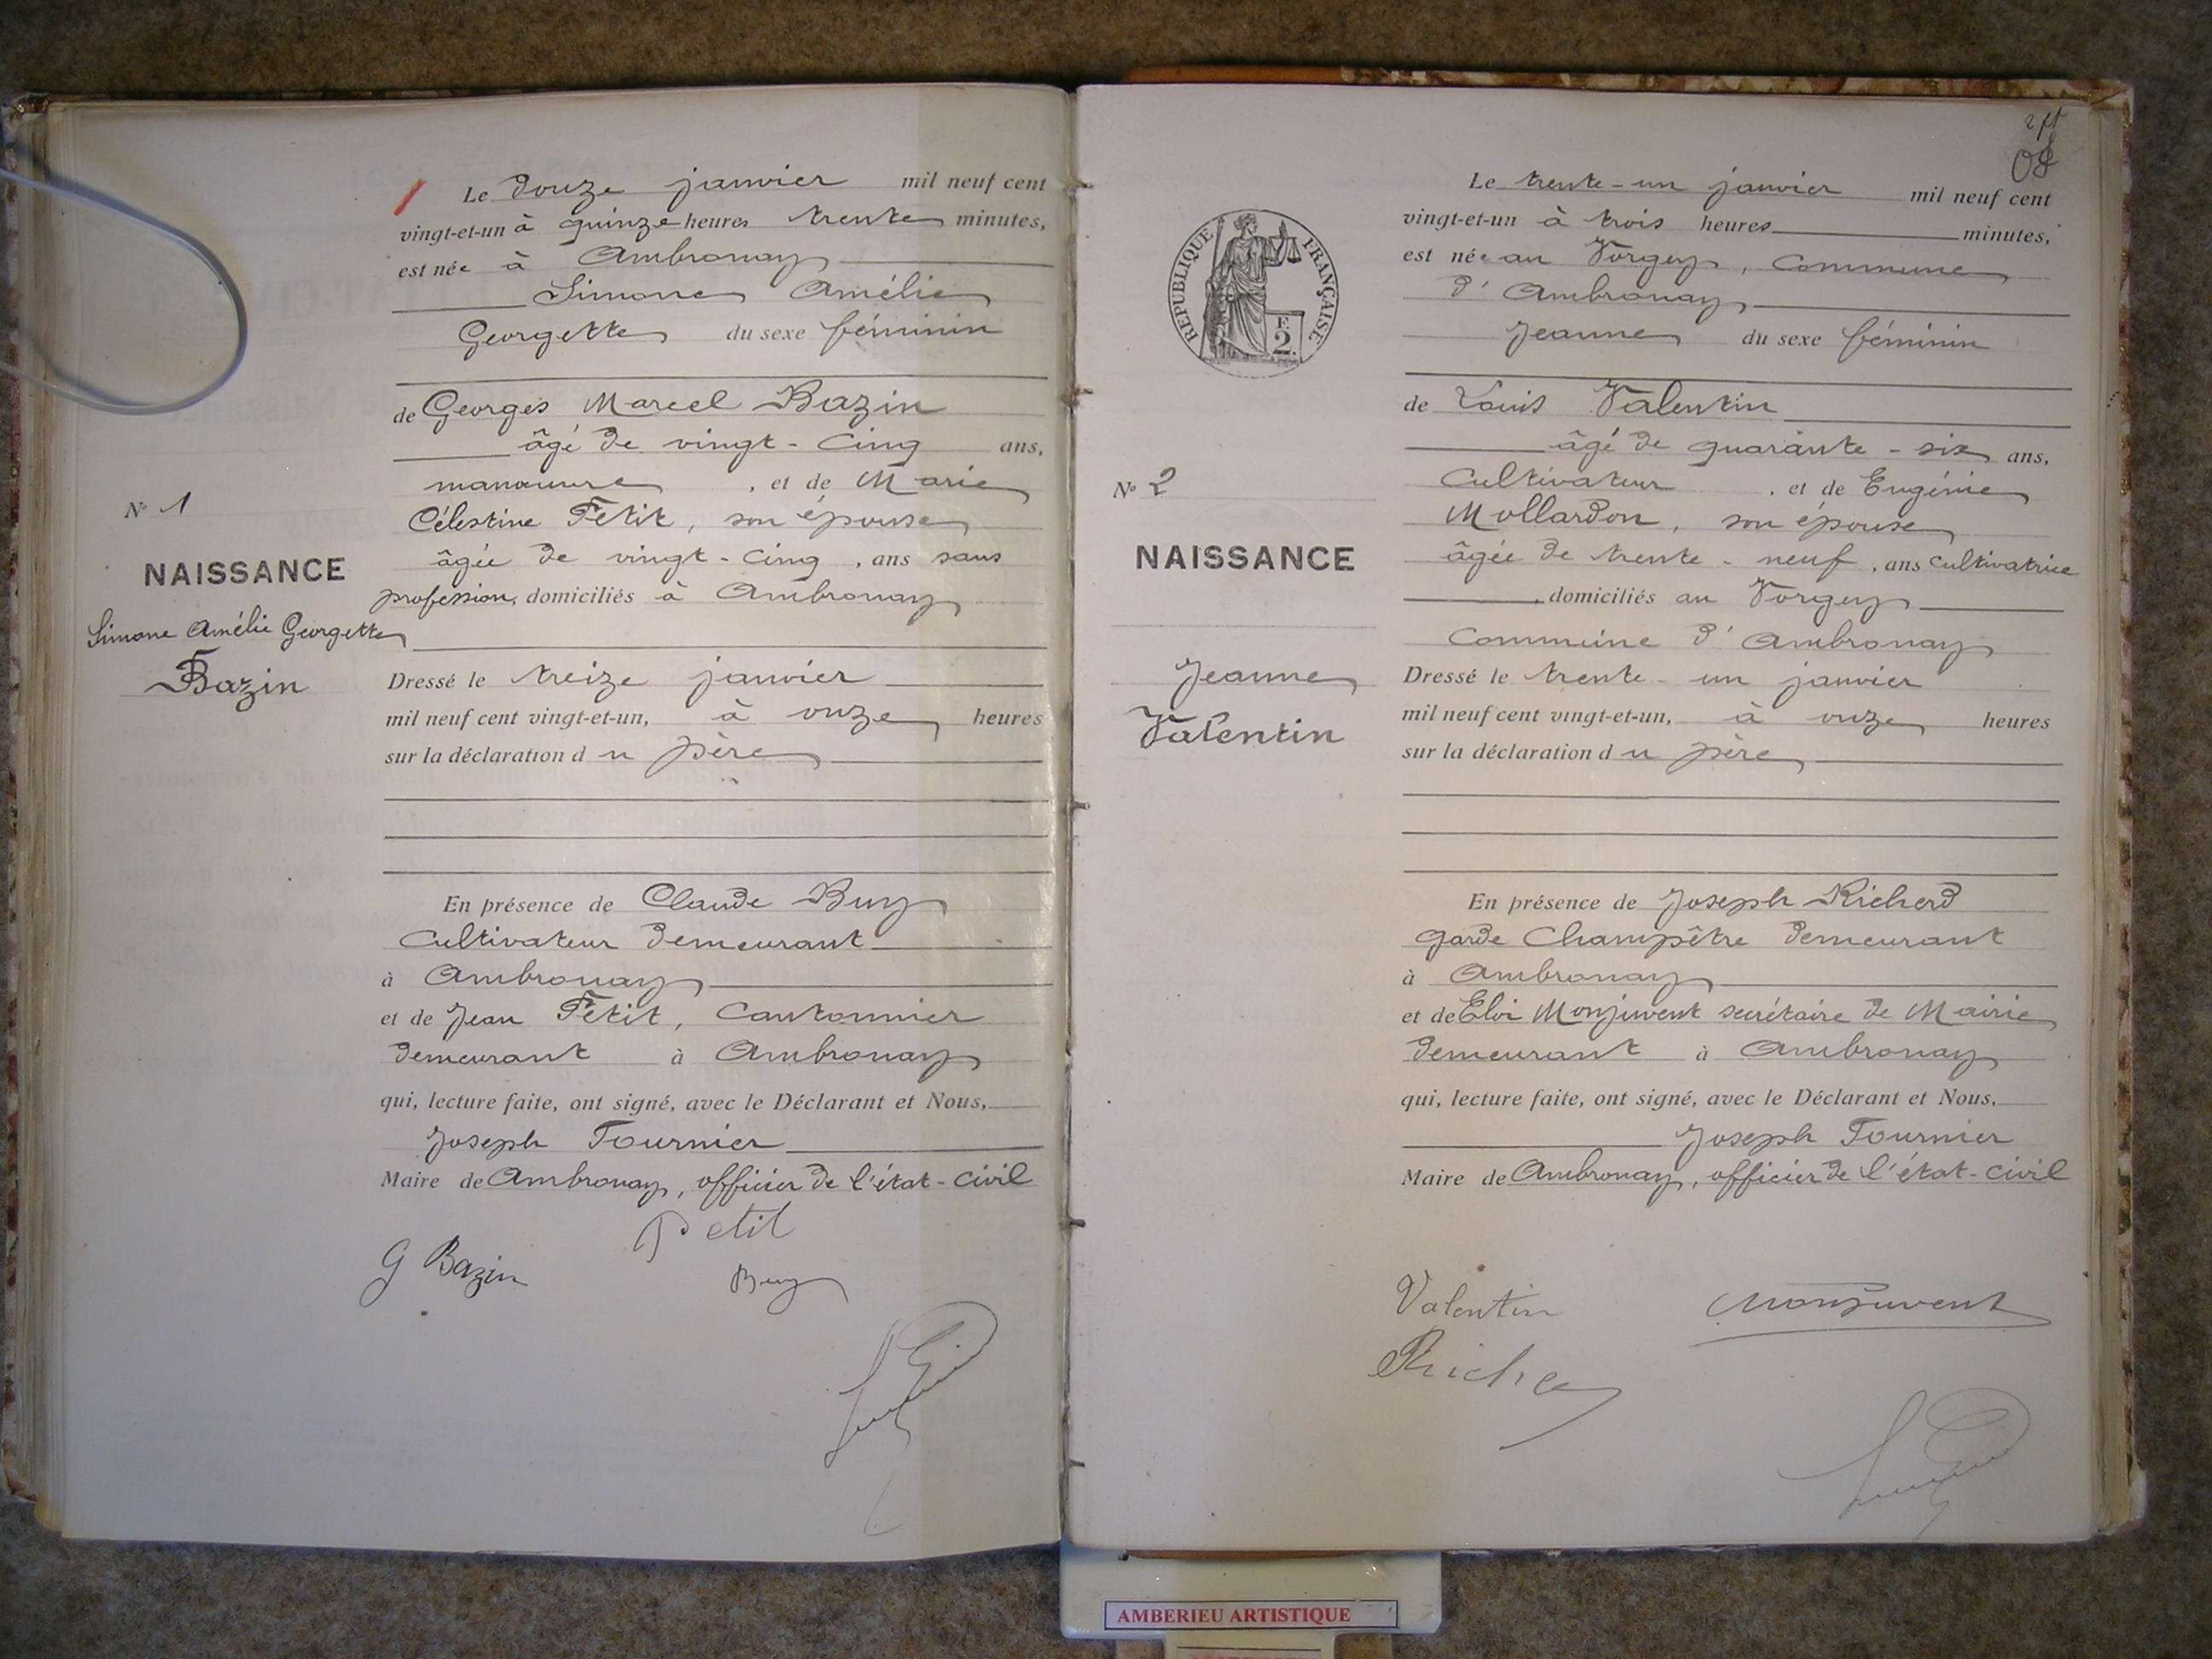 Le douze janvier mil neuf cent
vingt-et-un à quinze heures trente minutes,
est née à Ambronay
Simone Amélie
Georgette du sexe féminin
de Georges Marcel Bazin
âgé de vingt-cinq ans,
manœuvre, et de Marie
Célestine Petit, son épouse
âgée de vingt-cinq, ans sans
profession, domiciliés à Ambronay
Dressé le treize janvier
mil neuf cent vingt-et-un, à onze heures
sur la déclaration du père
En présence de Claude Buy
Cultivateur demeurant
à Ambronay
et de Jean Petit, Cantonnier
demeurant à Ambronay
qui, lecture faite, ont signé, avec le Déclarant et Nous,
Joseph Tournier
Maire de Ambronay, officier de l'état-civil
Petit
G Bazin
Buy
N° 1
NAISSANCE
Simone Amélie Georgette
Bazin
08
RÉPUBLIQUE FRANÇAISE
F.
2
N° 2
NAISSANCE
Jeanne
Valentin
Le trente-un janvier mil neuf cent
vingt-et-un à trois heures minutes,
est née au Vorgey, Commune
d'Ambronay
Jeanne du sexe féminin
de Louis Valentin
âgé de quarante-six ans,
Cultivateur, et de Eugénie
Mollardon, son épouse
âgée de trente-neuf, ans cultivatrice
, domiciliés au Vorgey
Commune d'Ambronay
Dressé le trente-un janvier
mil neuf cent vingt-et-un, à onze heures
sur la déclaration du père
En présence de Joseph Richerd
garde Champêtre demeurant
à Ambronay
et de Eloi Monjuvent secrétaire de Mairie
demeurant à Ambronay
qui, lecture faite, ont signé, avec le Déclarant et Nous,
Joseph Tournier
Maire de Ambronay, officier de l'état-civil
Valentin
Monjuvent
AMBERIEU ARTISTIQUE